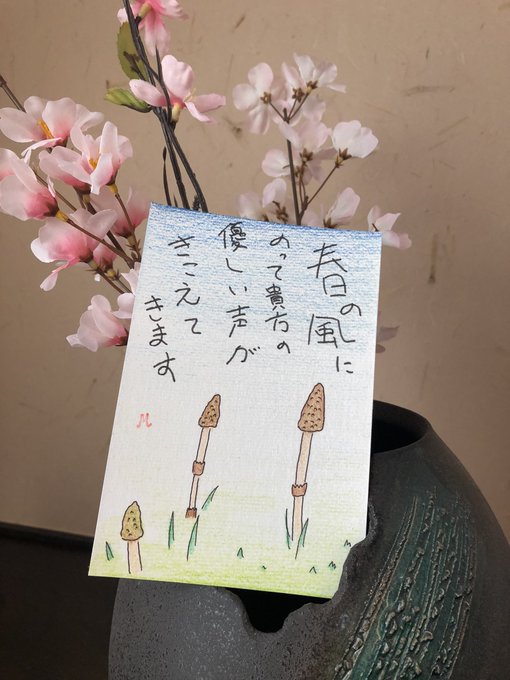 春の風に
のって貴方の
優しい声が
きこえて
きます
M